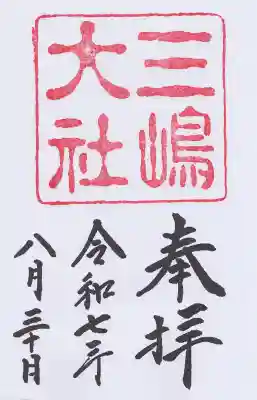 三嶋
大社
奉拝
令和七年
八月三十日